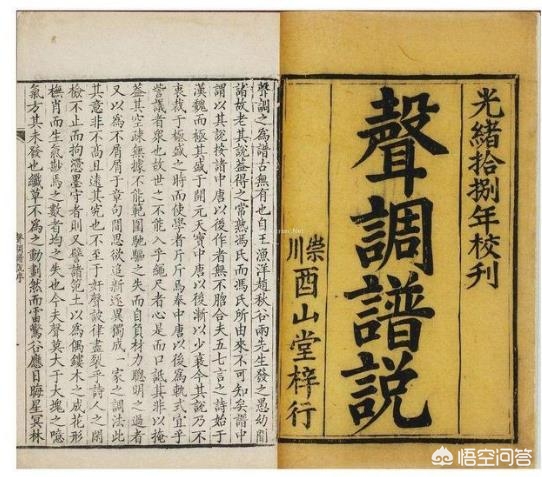 光緒拾捌年校刊
聲調譜説
崇川酉山堂梓行
聲調之為譜古無有也自王漁洋趙秋谷兩先生發之愚幼聞
諸故老其説葢得之常熟馮氏而馮氏所由來不可知矣譜中
謂以其説按諸中唐以後作者無不脗合夫五七言之詩始于
漢魏而極其盛于開元天寳中唐以後漸以少衰今其説乃不
衷裁于極盛之時而使學者斤斤焉奉中唐以後為軌式宜乎
訾議者衆也故世之不能入乎繩尺者心是而口詆其非以掩
葢其空疎無據不能範圍馳驅之失而自負材力聰明之過者
又以為不屑屑于章句間思欲追新逐異獨成一家之調法此
其意非不高且遠其究也不至于奸聲詖律盡裂乎詩人之閑
檢不止而拘墨守者則又譬諸範土以為偶鏤木之成花形
橅肖而生氣尠焉之數者均之失也今夫聲莫大于大塊之噫
氣方其未發也纖草不為之動劃然而雷驚谷應日晦星冥林
聲調譜説序
悟空问答